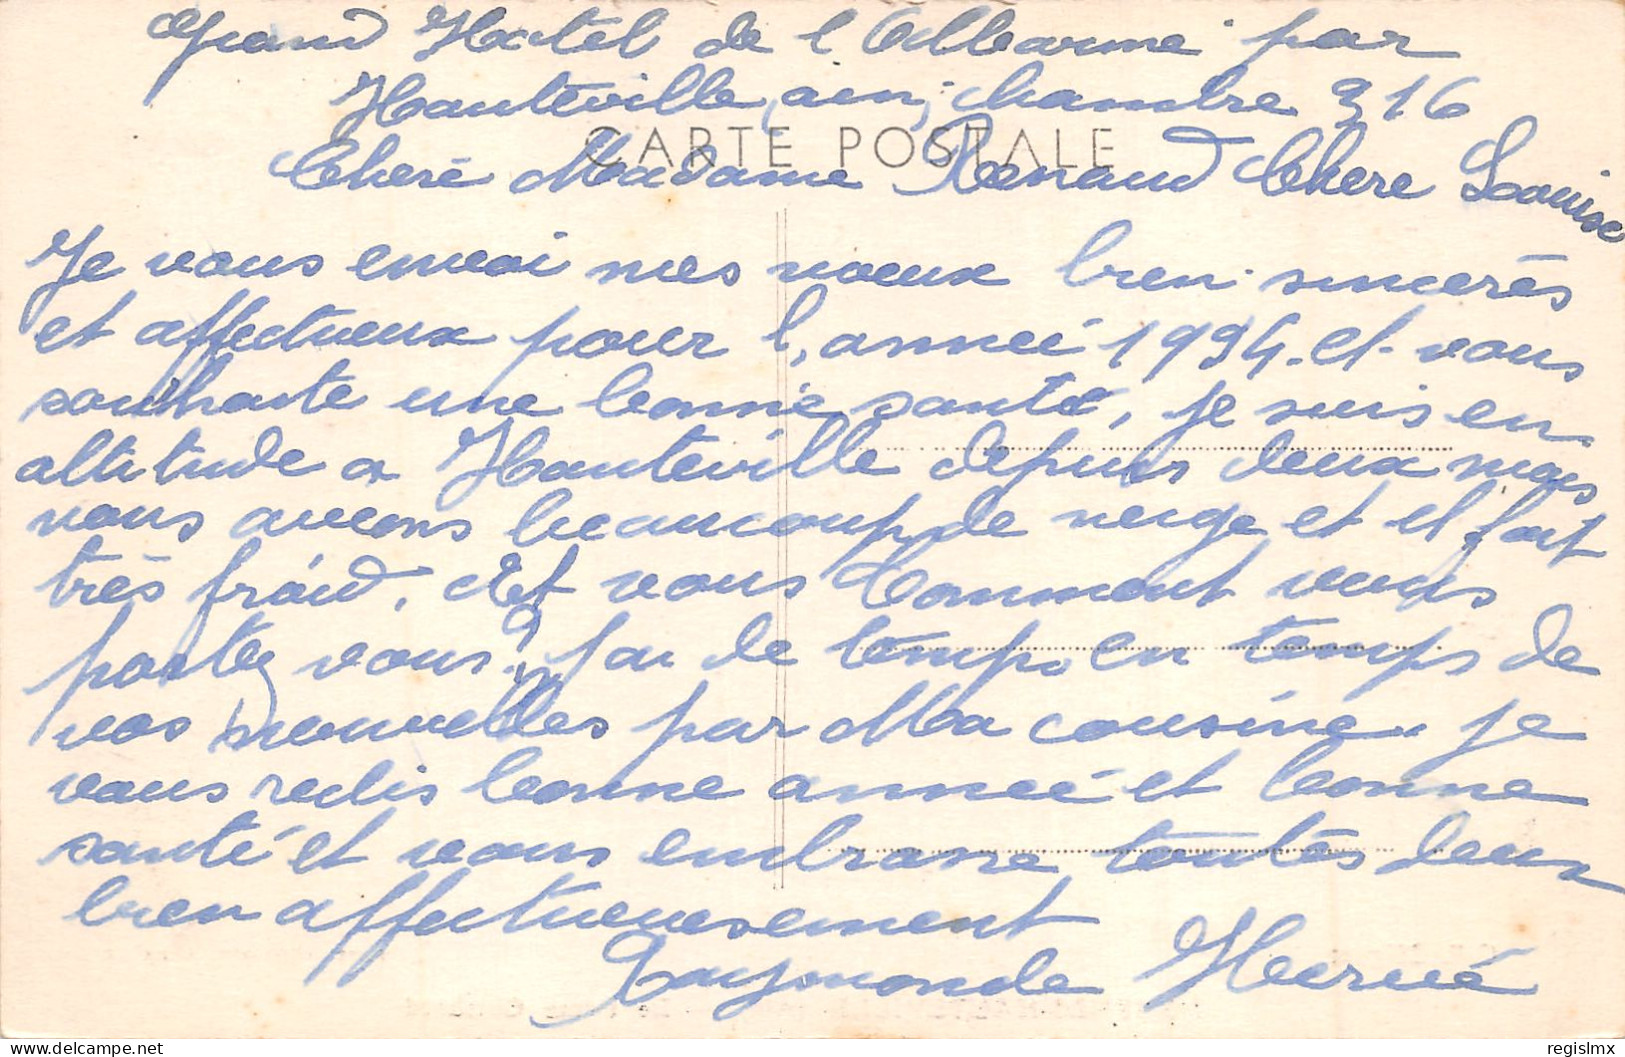 Grand Hotel de l'Albarine par
Hauteville (ain) chambre 316
CARTE POSTALE
Cheré Madame Renaud Chere Louise
Je vous envoi mes voeux bien sincerés
et affectueux pour l'anneé 1954. et vous
souhaite une bonne santé, je suis en
altitude a Hauteville depuis deux mois
nous avons beaucoup de neige et il fait
très froid. Et vous Comment vous
portez vous? J'ai de temps en temps de
vos nouvelles par Ma cousine. je
vous redis bonne anneé et bonne
santé et vous embrasse toutes deux
bien affectueusement
Raymonde Hervé
delcampe.net
regislmx